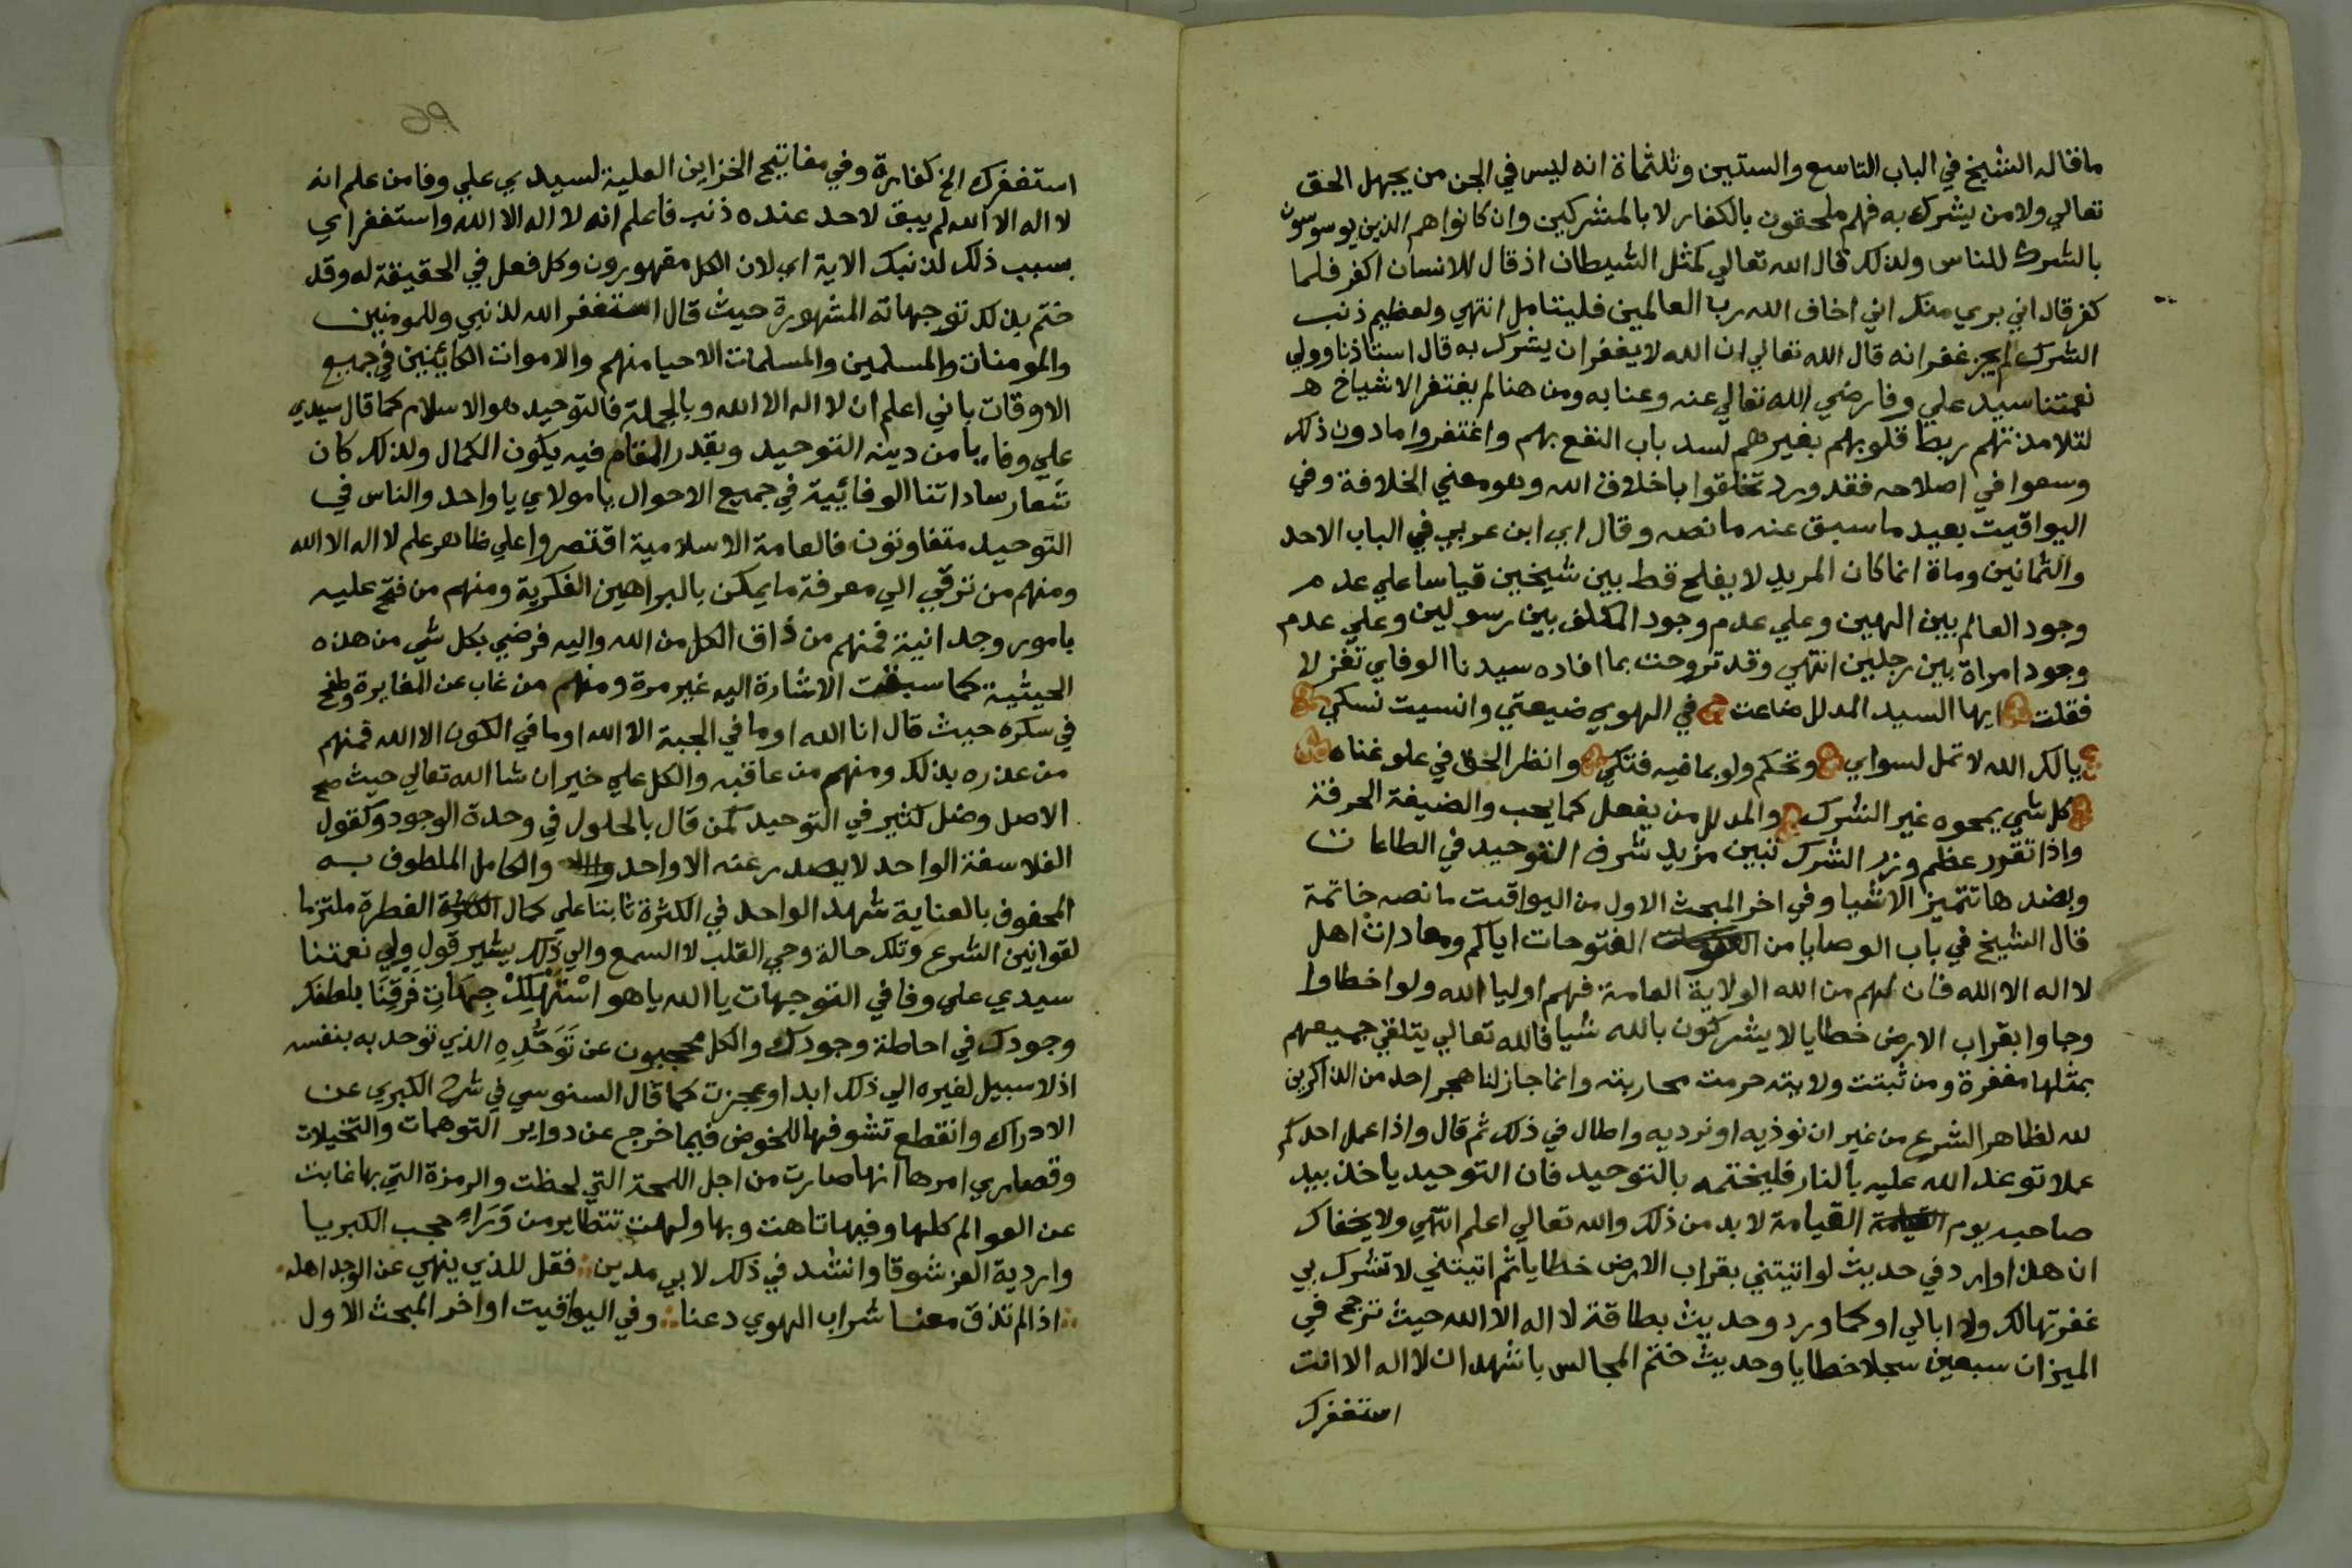 ما قاله الشيخ في الباب التاسع والستين وثلثماة انه ليس في الجن من يجهل الحق
تعالي ولا من يشرك به فهم ملحقون بالكفار لا بالمشركين وان كانوا هم الذين يوسوسون
بالشرك للناس ولذلك قال الله تعالي كمثل الشيطان اذ قال للانسان اكفر فلما
كفر قال اني بري منك اني اخاف الله رب العالمين فليتامل انتهي ولعظيم ذنب
الشرك لم يجز غفرانه قال الله تعالي ان الله لا يغفر ان يشرك به قال استاذنا وولي
نعمتنا سيد علي وفا رضي الله تعالي عنه وعنا به ومن هنا لم يغتفر الاشياخ
لتلامذتهم ربط قلوبهم بغيرهم لسد باب النفع بهم واغتفروا ما دون ذلك
وسعوا في اصلاحه فقد ورد تخلقوا باخلاق الله وهو معني الخلافة وفي
اليواقيت بعيد ما سبق عنه ما نصه وقال اي ابن عربي في الباب الاحد
والثمانين وماة انما كان المريد لا يفلح قط بين شيخين قياسا علي عدم
وجود العالم بين الهين وعلي عدم وجود المكلف بين رسولين وعلي عدم
وجود امراة بين رجلين انتهي وقد تروحت بما افاده سيدنا الوفاي تغزلا
فقلت ايها السيد المدلل ضاعت في الهوي ضيعتي وانسيت نسكي
يا لك الله لا تمل لسواي وتحكم ولو بما فيه فتكي وانظر الحق في علو غناه
كل شي يمحوه غير الشرك والمدلل من يفعل كما يحب والضيفة الحرفة
واذا تقرر عظم وزر الشرك تبين مزيد شرف التوحيد في الطاعات
وبضدها تتميز الاشيا وفي اخر المبحث الاول من اليواقيت ما نصه خاتمة
قال الشيخ في باب الوصايا من الفتوحات اياكم ومعادات اهل
لا اله الا الله فان لهم من الله الولاية العامة فهم اوليا الله ولو اخطاوا
وجاوا بقراب الارض خطايا لا يشركون بالله شيا فالله تعالي يتلقي جميعهم
بمثلها مغفرة ومن ثبتت ولايته حرمت محاربته وانما جاز لنا هجر احد من الذاكرين
لله لظاهر الشرع من غير ان نوذيه او نرديه واطال في ذلك ثم قال واذا عمل احدكم
عملا توعد الله عليه بالنار فليختمه بالتوحيد فان التوحيد ياخذ بيد
صاحبه يوم القيامة لا بد من ذلك والله تعالي اعلم انتهي ولا يخفاك
ان هذا وارد في حديث لو اتيتني بقراب الارض خطايا ثم اتيتني لا تشرك بي
غفرتها لك ولا ابالي او كما ورد وحديث بطاقة لا اله الا الله حيث ترجح في
الميزان سبعين سجلا خطايا وحديث ختم المجالس باشهد ان لا اله الا انت
استغفرك
استغفرك الخ كفارة وفي مفاتيح الخزاين العلية لسيدي علي وفا من علم انه
لا اله الا الله لم يبق لاحد عنده ذنب فاعلم انه لا اله الا الله واستغفر اي
بسبب ذلك لذنبك الاية اي لان الكل مقهورون وكل فعل في الحقيقة له وقد
ختم بذلك توجهاته المشهورة حيث قال استغفر الله لذنبي وللمومنين
والمومنات والمسلمين والمسلمات الاحيا منهم والاموات الكائنين في جميع
الاوقات باني اعلم ان لا اله الا الله وبالجملة فالتوحيد هو الاسلام كما قال سيدي
علي وفا يا من دينه التوحيد وبقدر المقام فيه يكون الكمال ولذلك كان
شعار ساداتنا الوفائية في جميع الاحوال يا مولاي يا واحد والناس في
التوحيد متفاوتون فالعامة الاسلامية اقتصروا علي ظاهر علم لا اله الا الله
ومنهم من ترقي الي معرفة ما يمكن بالبراهين الفكرية ومنهم من فتح عليه
بامور وجدانية فمنهم من ذاق الكل من الله واليه فرضي بكل شي من هذه
الحيثية كما سبقت الاشارة اليه غير مرة ومنهم من غاب عن المغايرة وطفح
في سكره حيث قال انا الله او ما في الجبة الا الله او ما في الكون الا الله فمنهم
من عذره بذلك ومنهم من عاقبه والكل علي خير ان شا الله تعالي حيث صح
الاصل وضل كثير في التوحيد كمن قال بالحلول في وحدة الوجود وكقول
الفلاسفة الواحد لا يصدر عنه الا واحد والكامل الملطوف به
المحفوف بالعناية شهد الواحد في الكثرة ثابتا علي كمال الفطرة ملتزما
لقوانين الشرع وتلك حالة وحي القلب لا السمع والي ذلك يشير قول ولي نعمتنا
سيدي علي وفا في التوجهات يا الله يا هو استهلك جهات فرقنا بلطفك
وجودك في احاطة وجودك والكل محجوبون عن توحده الذي توحد به بنفسه
اذ لا سبيل لغيره الي ذلك ابدا وعجزت كما قال السنوسي في شرح الكبري عن
الادراك وانقطع تشوفها للخوض فيما خرج عن دواير التوهمات والتخيلات
وقصاري امرها انها صارت من اجل اللمحة التي لحظت والرمزة التي بها غابت
عن العوالم كلها وفيها تاهت وبها ولهت تتطاير من وراء حجب الكبريا
واردية العز شوقا وانشد في ذلك لابي مدين فقل للذي ينهي عن الوجد اهله
اذا لم تذق معنا شراب الهوي دعنا وفي اليواقيت اواخر المبحث الاول